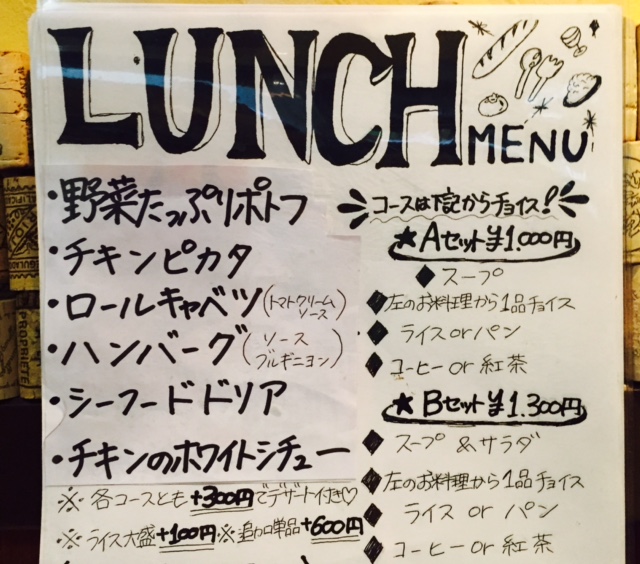 LUNCH
MENU
・野菜たっぷりポトフ
・チキンピカタ
・ロールキャベツ(トマトクリームソース)
・ハンバーグ(ソースブルギニヨン)
・シーフードドリア
・チキンのホワイトシチュー
※各コースとも+300円でデザート付き♡
※ライス大盛+100円※追加単品+600円
コースは下記からチョイス!
★Aセット¥1.000円
◆スープ
◆左のお料理から1品チョイス
◆ライスorパン
◆コーヒーor紅茶
★Bセット¥1.300円
◆スープ&サラダ
◆左のお料理から1品チョイス
◆ライスorパン
◆コーヒーor紅茶
PROPRIETE